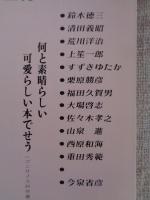 鈴木徳三
清田義昭
荒川洋治
上笙一郎
すずきゆたか
栗原勝彦
福田久賀男
大場啓志
佐々木孝之
山泉 進
西原和海
重田秀範
今泉省彦
何と素晴らしい
可愛らしい本でせう